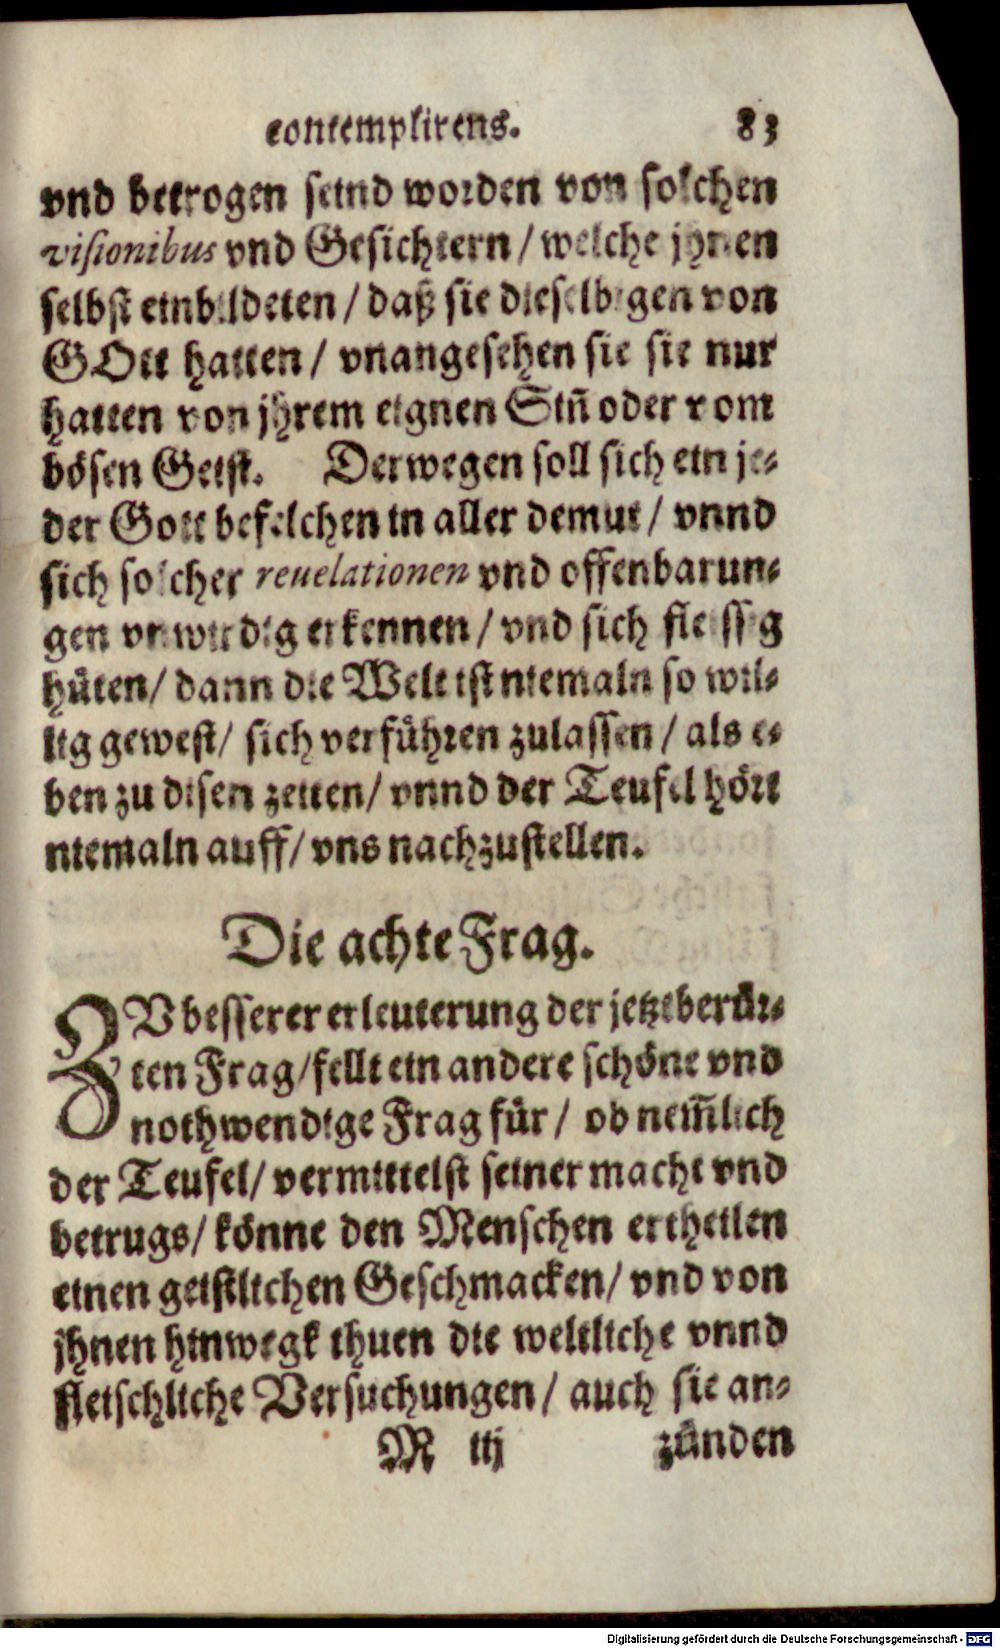 contemplirens. 83
vnd betrogen seind worden von solchen
visionibus vnd Gesichtern / welche jhnen
selbst einbildeten / daß sie dieselbigen von
GOtt hatten / vnangesehen sie sie nur
hatten von jhrem eignen Siñ oder vom
bösen Geist. Derwegen soll sich ein je-
der Gott befelchen in aller demut / vnnd
sich solcher reuelationen vnd offenbarun-
gen vnwirdig erkennen / vnd sich fleissig
hüten / dann die Welt ist niemaln so wil-
lig gewest / sich verführen zulassen / als e-
ben zu disen zeiten / vnnd der Teufel hört
niemaln auff / vns nachzustellen.
Die achte Frag.
ZV besserer erleuterung der jetztberür-
ten Frag / fellt ein andere schöne vnd
nothwendige Frag für / ob nem̃lich
der Teufel / vermittelst seiner macht vnd
betrugs / könne den Menschen ertheilen
einen geistlichen Geschmacken / vnd von
jhnen hinwegk thuen die weltliche vnnd
fleischliche Versuchungen / auch sie an-
M iij zünden
Digitalisierung gefördert durch die Deutsche Forschungsgemeinschaft - DFG